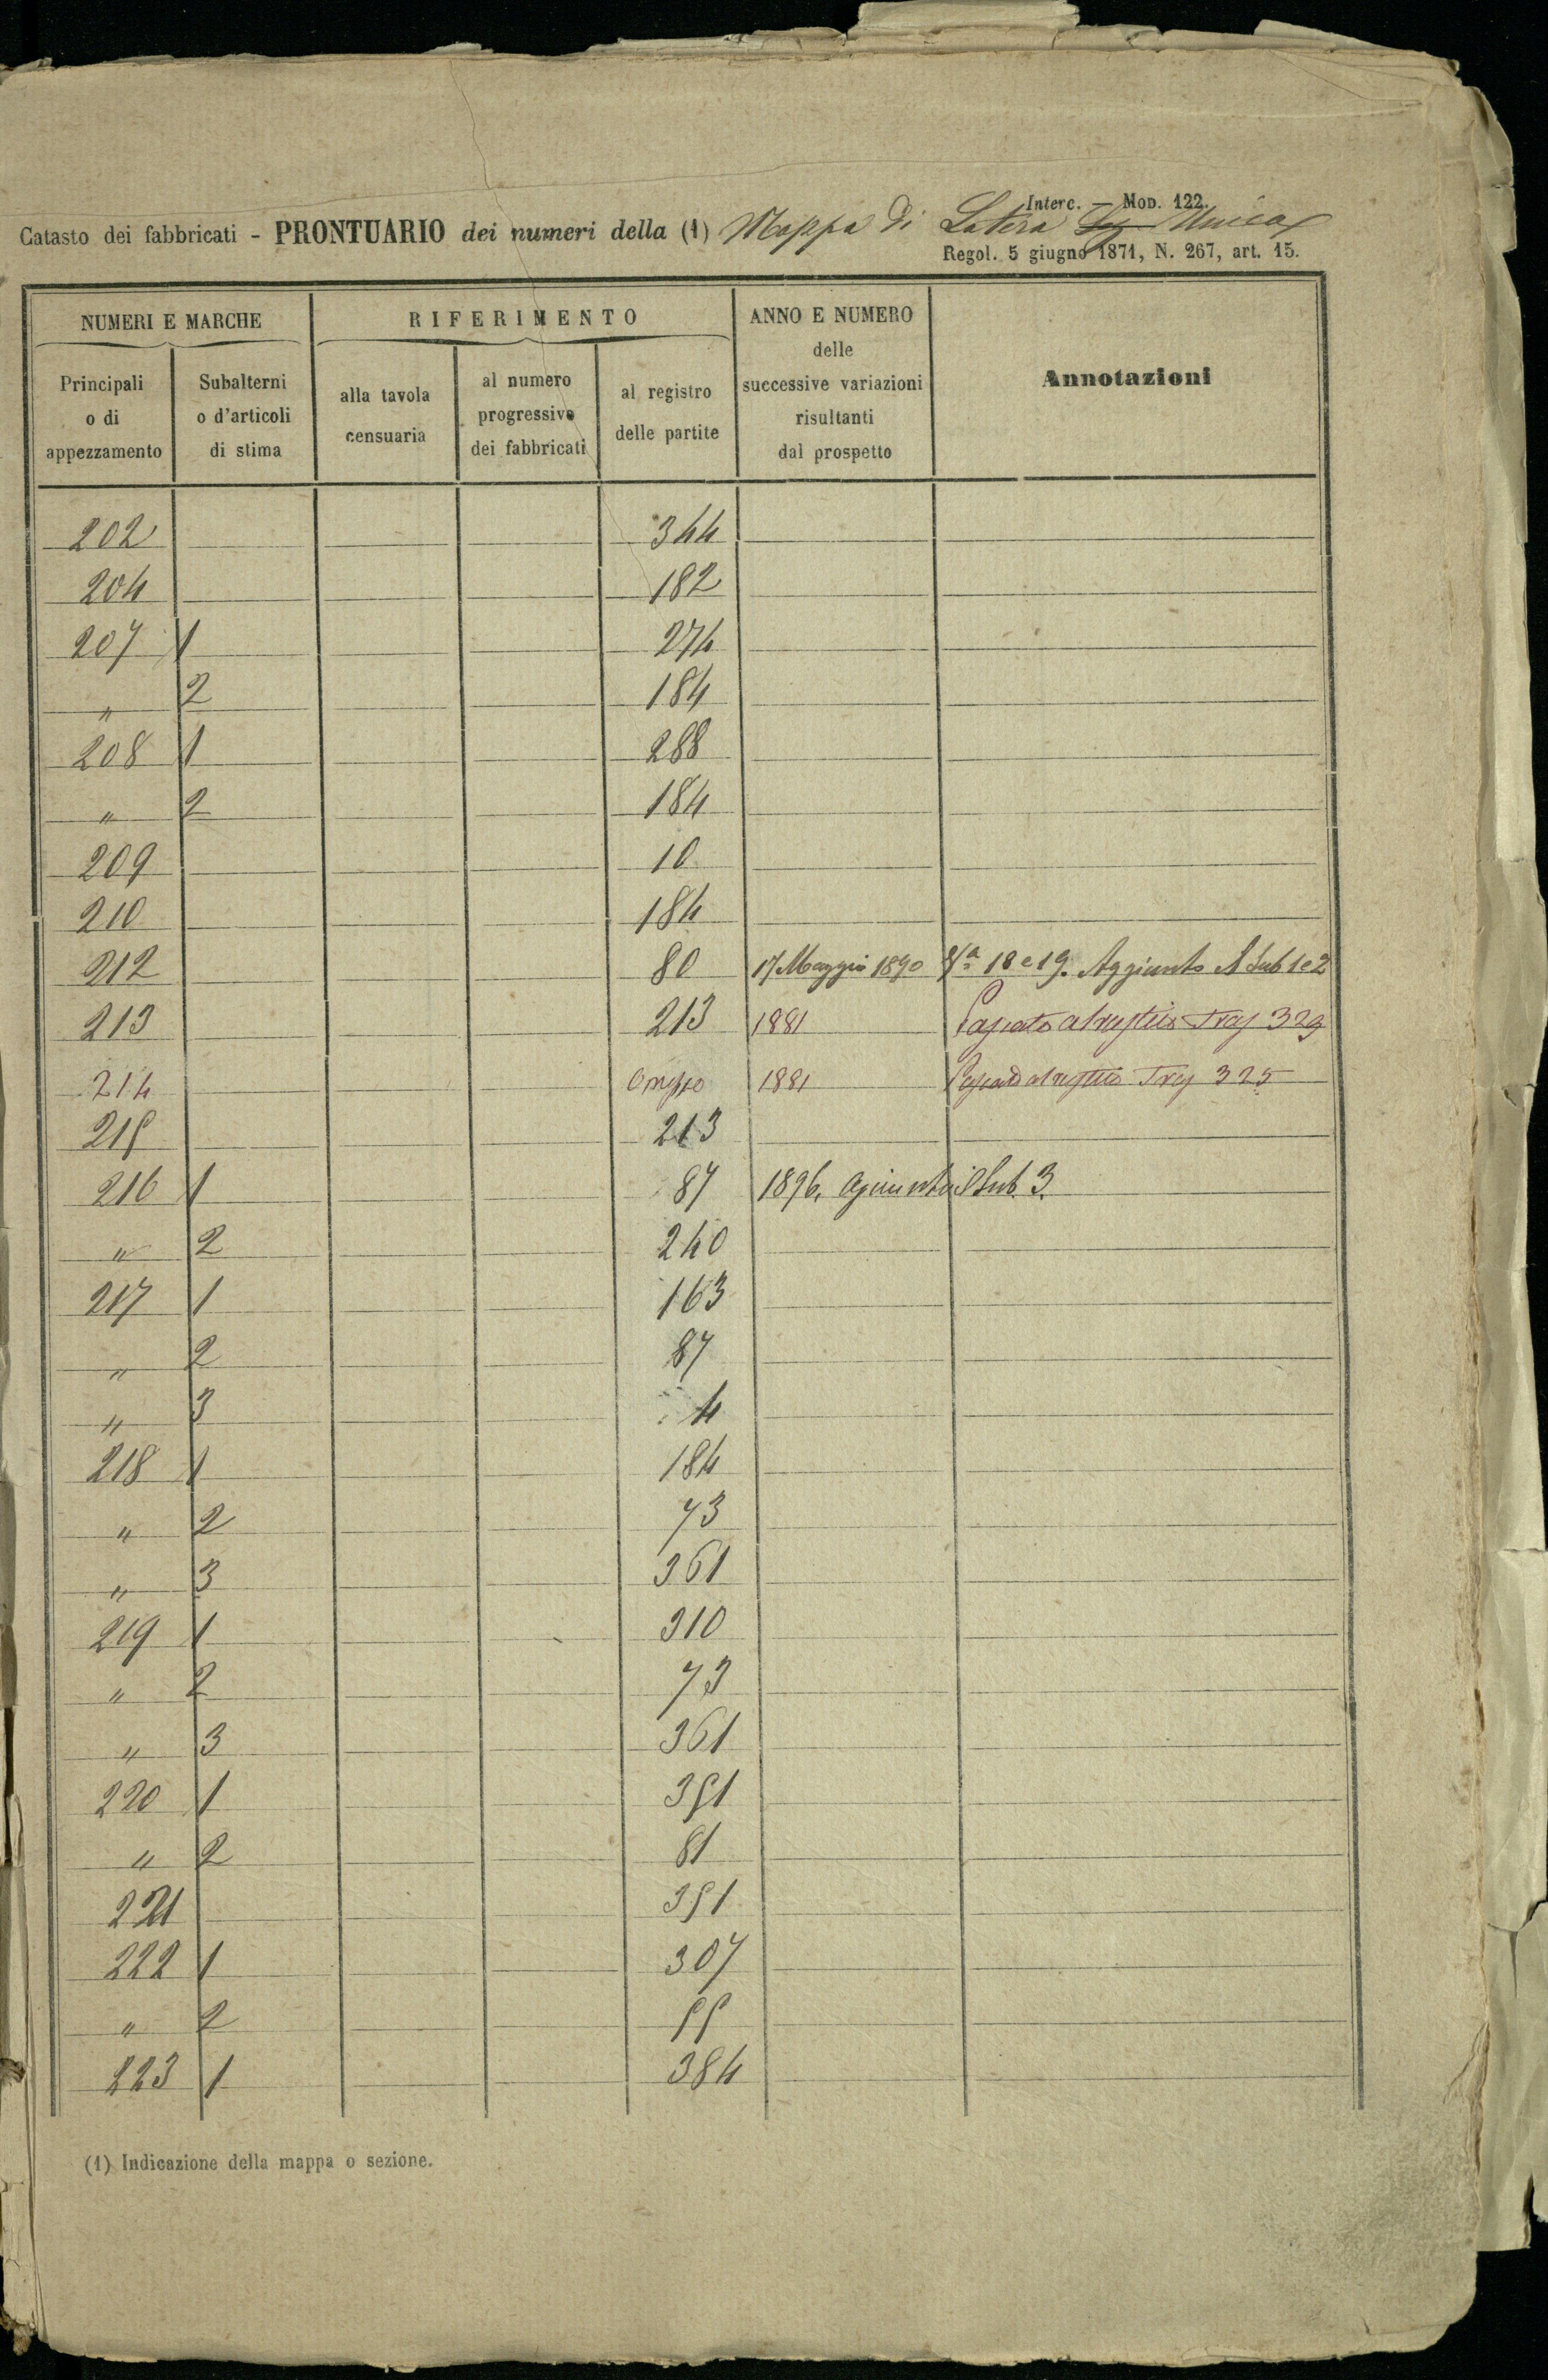 Interc. - Mod. 122.
Catasto dei fabbricati - PRONTUARIO dei numeri della (1) Mappa di Latera Unica
Regol. 5 giugno 1871, N. 267, art. 15.
NUMERI E MARCHE RIFERIMENTO ANNO E NUMERO delle successive variazioni risultanti dal prospetto Annotazioni
Principali o di appezzamento Subalterni o d'articoli di stima alla tavola censuaria al numero progressivo dei fabbricati al registro delle partite
202 344
204 182
207 1 274
" 2 184
208 1 288
" 2 184
209 10
210 184
212 80 17 Maggio 1890 18 e 19. Aggiunto Sub 1 e 2
213 213 1881 329
214 Omesso 1881 325
215 213
216 1 87 1896, Sub. 3.
" 2 240
217 1 163
" 2 87
" 3 4
218 1 184
" 2 73
" 3 361
219 1 310
" 2 73
" 3 361
220 1 351
" 2 81
221 351
222 1 307
" 2 55
223 1 384
(1) Indicazione della mappa o sezione.